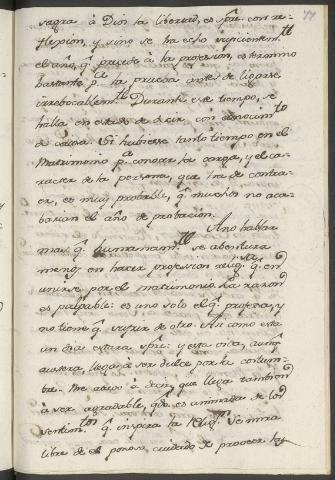 sagra à Dios la libertad, es spre. con re-
flexion, y sino se ha echo suficientemte.
el año, q̃ precede à la profesion, es termino
bastante pa. la prueba antes de ligarse
irrebocablemte. Durante este tiempo, se
halla en estado de decir con conocimto.
de causa. Si hubiese tanto tiempo en el
Matrimonio pa. conocer la carga, y el ca-
racter de la persona, que ha de contra-
er, es muy probable, q̃ muchos no aca-
barian el año de probacion.
A no hablar
mas q̃ humanamte. se abentura
menos en hacer profesion religsa. q̃ en
unirse por el matrimonio. La razon
es palpable: es uno solo el q̃ profesa, y
no tiene q̃ sufrir de otro. Asi como esta
un dia estara spre. y esta vida, aunq̃
austera, llega à ser dulce por la costum-
bre. Me atrevo à decir, que llega tambien
à ser agradable, qdo. es animada de los
sentimtos. q̃ inspira la Religon. Se mira
libre de el penoso cuidado de proveer las